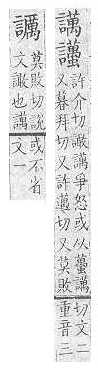 䜕
許介切譀諍怒或从蠆
又暮拜切又許邁切又莫敗
切文二
重音三
莫敗切說
文譀也
或不省
文一